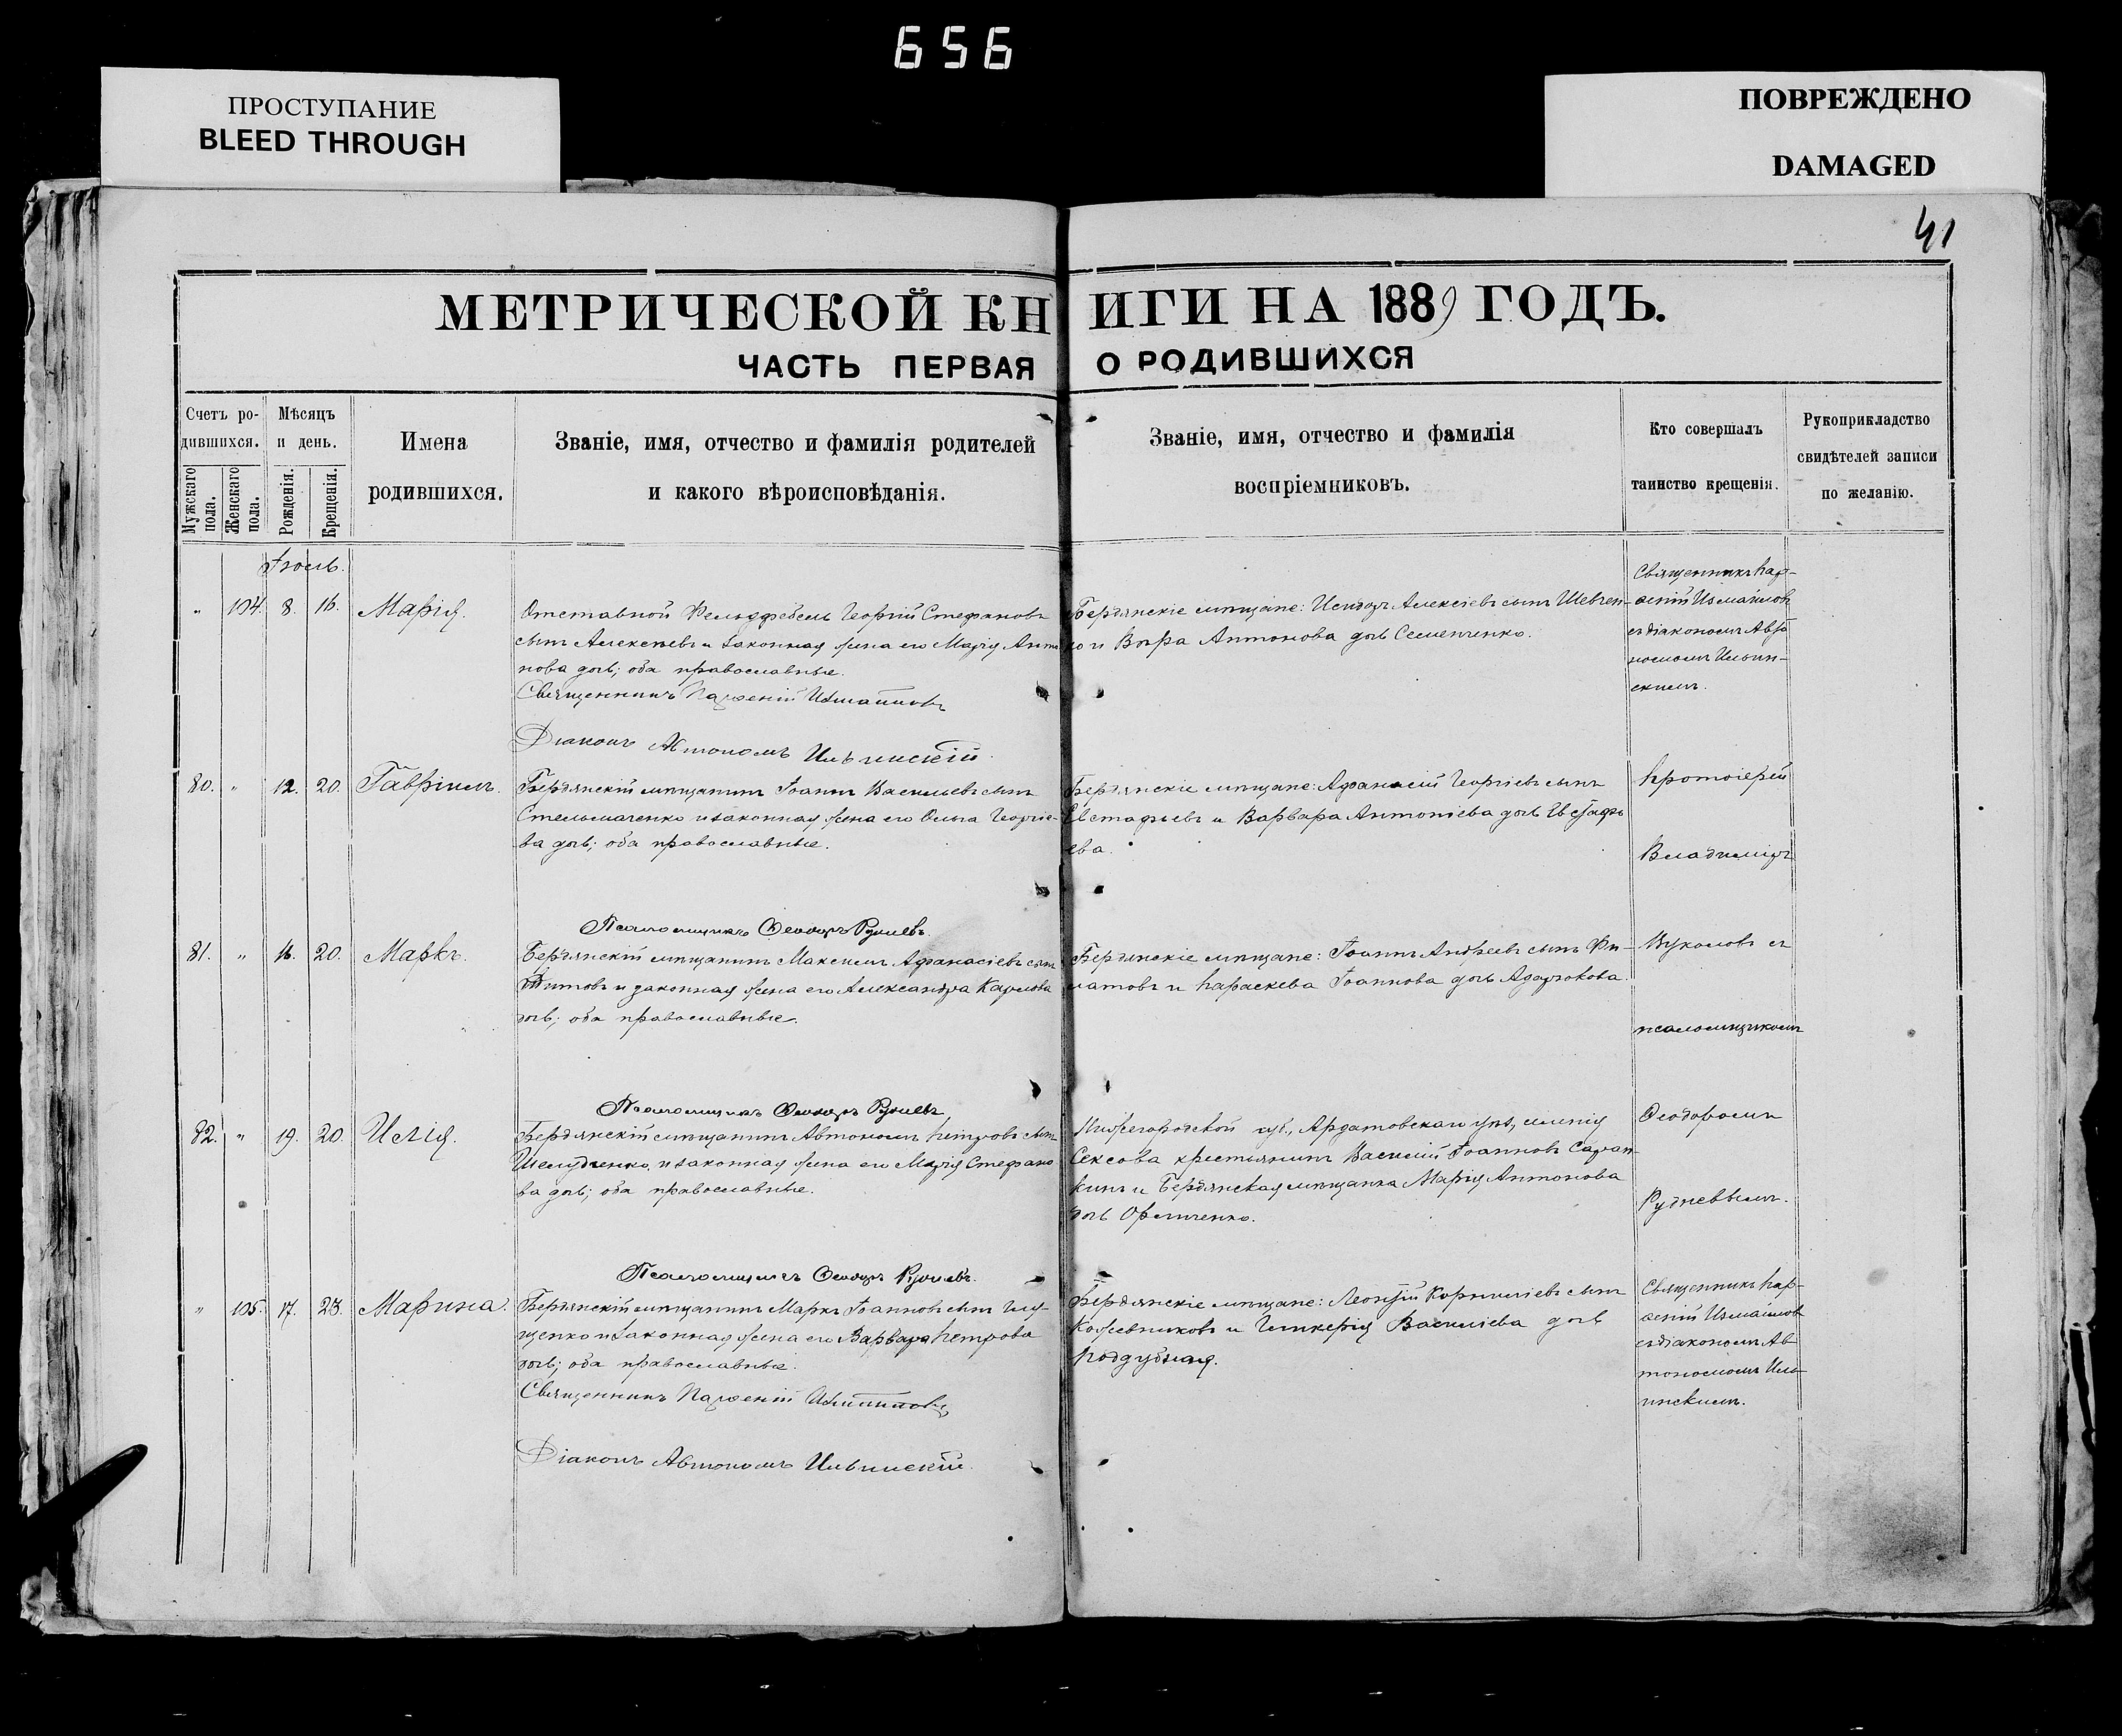 656
ПРОСТУПАНИЕ
BLEED THROUGH
ПОВРЕЖДЕНО
DAMAGED
41
МЕТРИЧЕСКОЙ КНИГИ НА 1889 ГОДЪ.
ЧАСТЬ ПЕРВАЯ О РОДИВШИХСЯ
Счетъ ро-
дившихся.
Мужскаго пола.
Женскаго пола.
Мѣсяцъ
и день.
Рожденія.
Крещенія.
Имена
родившихся.
Званіе, имя, отчество и фамилія родителей
и какого вѣроисповѣданія.
Званіе, имя, отчество и фамилія
воспріемниковъ.
Кто совершалъ
таинство крещенія.
Рукоприкладство
свидѣтелей записи
по желанію.
Іюль.
" 104. 8. 16. Марія.
Отставной Фельдфебель Георгій Стефановъ
сынъ Алексѣевъ и законная жена его Марія Анто-
нова дочь; оба православные.
Священникъ Парѳеній Измаиловъ
Діаконъ Автономъ Ильинскій.
Бердянскіе мѣщане: Исидоръ Алексіевъ сынъ Шевчен-
ко и Вѣра Антонова дочь Семенченко.
Священникъ Пар-
ѳеній Измаиловъ
съ діакономъ Авто
номомъ Ильин-
скимъ.
80. " 12. 20. Гавріилъ.
Бердянскій мѣщанинъ Іоаннъ Васильевъ сынъ
Стельмаченко и законная жена его Ольга Георгіе-
ва дочь; оба православные.
Псаломщикъ Ѳеодоръ Рудневъ.
Бердянскіе мѣщане: Афанасій Георгіевъ сынъ
Евстафьевъ и Варвара Антоніева дочь Евстафь
ева.
Протоіерей
Владиміръ
81. " 16. 20. Маркъ.
Бердянскій мѣщанинъ Максимъ Афанасіевъ сынъ
Титовъ и законная жена его Александра Карпова
дочь; оба православные.
Псаломщикъ Ѳеодоръ Рудневъ
Бердянскіе мѣщане: Іоаннъ Андреевъ сынъ Фи-
латовъ и Параскева Іоаннова дочь
Вуколовъ съ
псаломщикомъ
82. " 19. 20. Илія.
Бердянскій мѣщанинъ Автономъ Петровъ сынъ
Шелудченко и законная жена его Марія Стефано
ва дочь; оба православные.
Псаломщикъ Ѳеодоръ Рудневъ.
Нижегородской губ., Ардатовскаго уѣз, имѣнія
крестьянинъ Василій Іоанновъ Саран-
кинъ и Бердянская мѣщанка Марія Антонова
дочь
Ѳеодоромъ
Рудневымъ.
" 105. 17. 23. Марина.
Бердянскій мѣщанинъ Маркъ Іоанновъ сынъ Глу-
щенко и законная жена его Варвара Петрова
дочь; оба православные.
Священникъ Парѳеній Измаиловъ
Діаконъ Автономъ Ильинскій.
Бердянскіе мѣщане: Леонтій Корниліевъ сынъ
Кожевниковъ и Гликерія Василіева дочь
Поддубная.
Священникъ Пар-
ѳеній Измаиловъ
съ діакономъ Ав-
тономомъ Иль-
инскимъ.